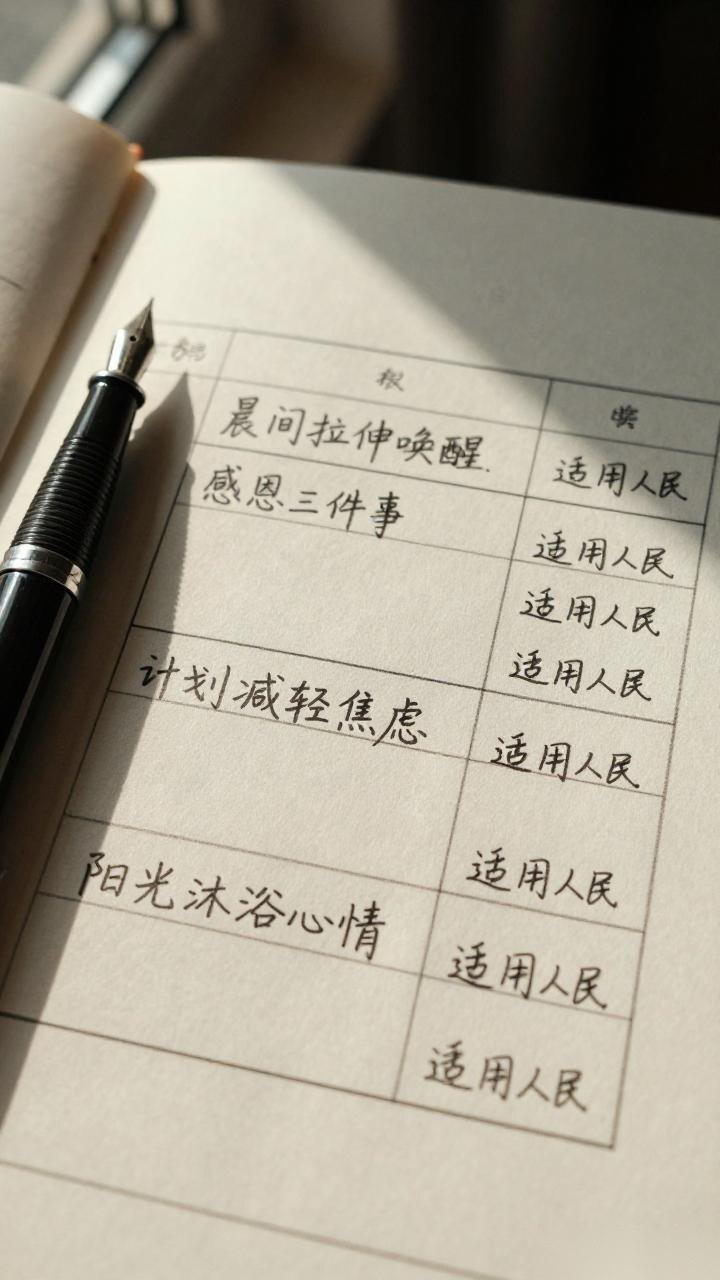 晨间拉伸唤醒.
适用人民
感恩三件事
适用人民
适用人民
适用人民
计划减轻焦虑
适用人民
适用人民
阳光沐浴心情
适用人民
适用人民